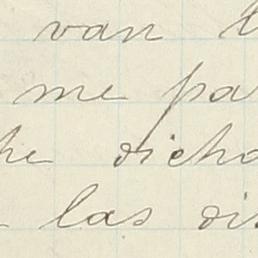 van
me pa
he dicho
las dis